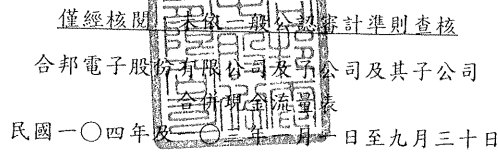 僅經核閱，未依一般公認審計準則查核
合邦電子股份有限公司及子公司及其子公司
合併現金流量表
民國一〇四年及一〇三年一月一日至九月三十日